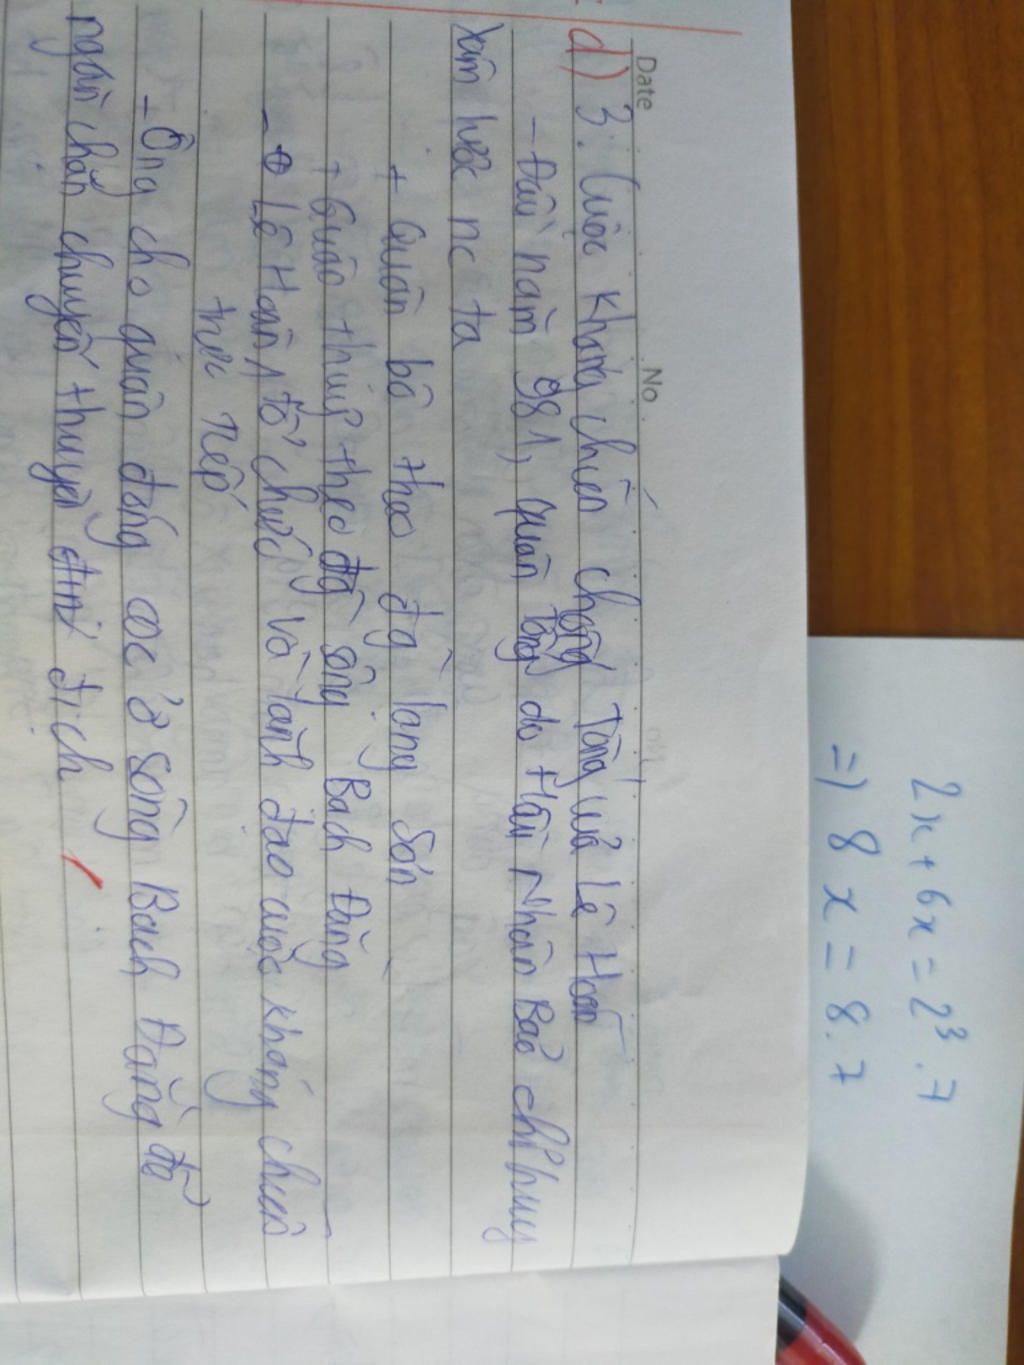 2x + 6x = 2³ . 7
=) 8 x = 8 . 7
Date No.
d) 3. Cuộc kháng chiến chống Tống của Lê Hoàn
- Đầu năm 981, quân Tống do Hầu Nhân Bảo chỉ huy
xâm lược nc ta
+ Quân bộ theo đg lạng Sơn
+ Quân thuỷ theo đg sông Bạch Đằng
- Lê Hoàn tổ chức và lãnh đạo cuộc kháng chiến
trực tiếp
- Ông cho quân đóng cọc ở sông Bạch Đằng để
ngăn chặn chuyến thuyền địch